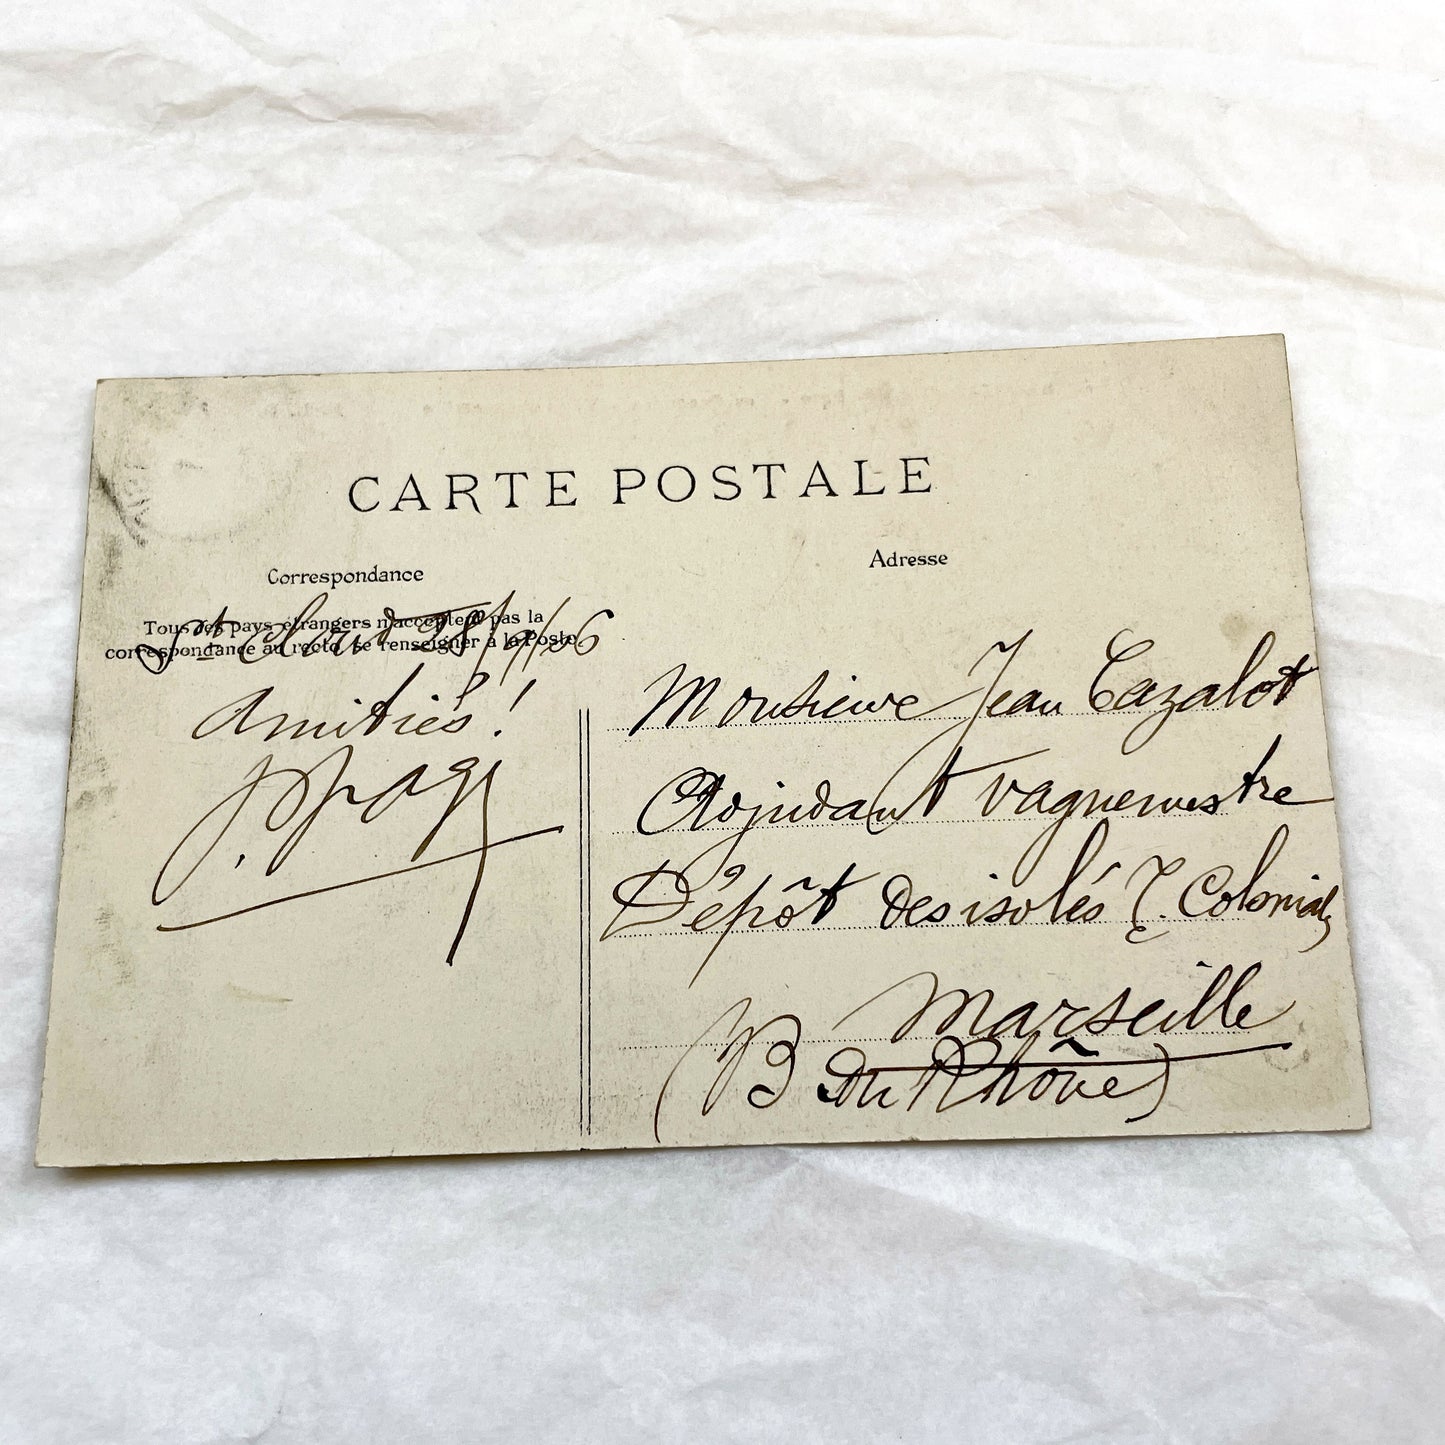 CARTE POSTALE
Correspondance
Adresse
Tous les pays étrangers n'acceptent pas la
correspondance au recto, se renseigner à la Poste.
St Cloud 28/9/06
Amitiés!
Monsieur Jean Cazalot
Adjudant vaguemestre
Dépôt des isolés T. Colonial
Marseille
(B du Rhône)